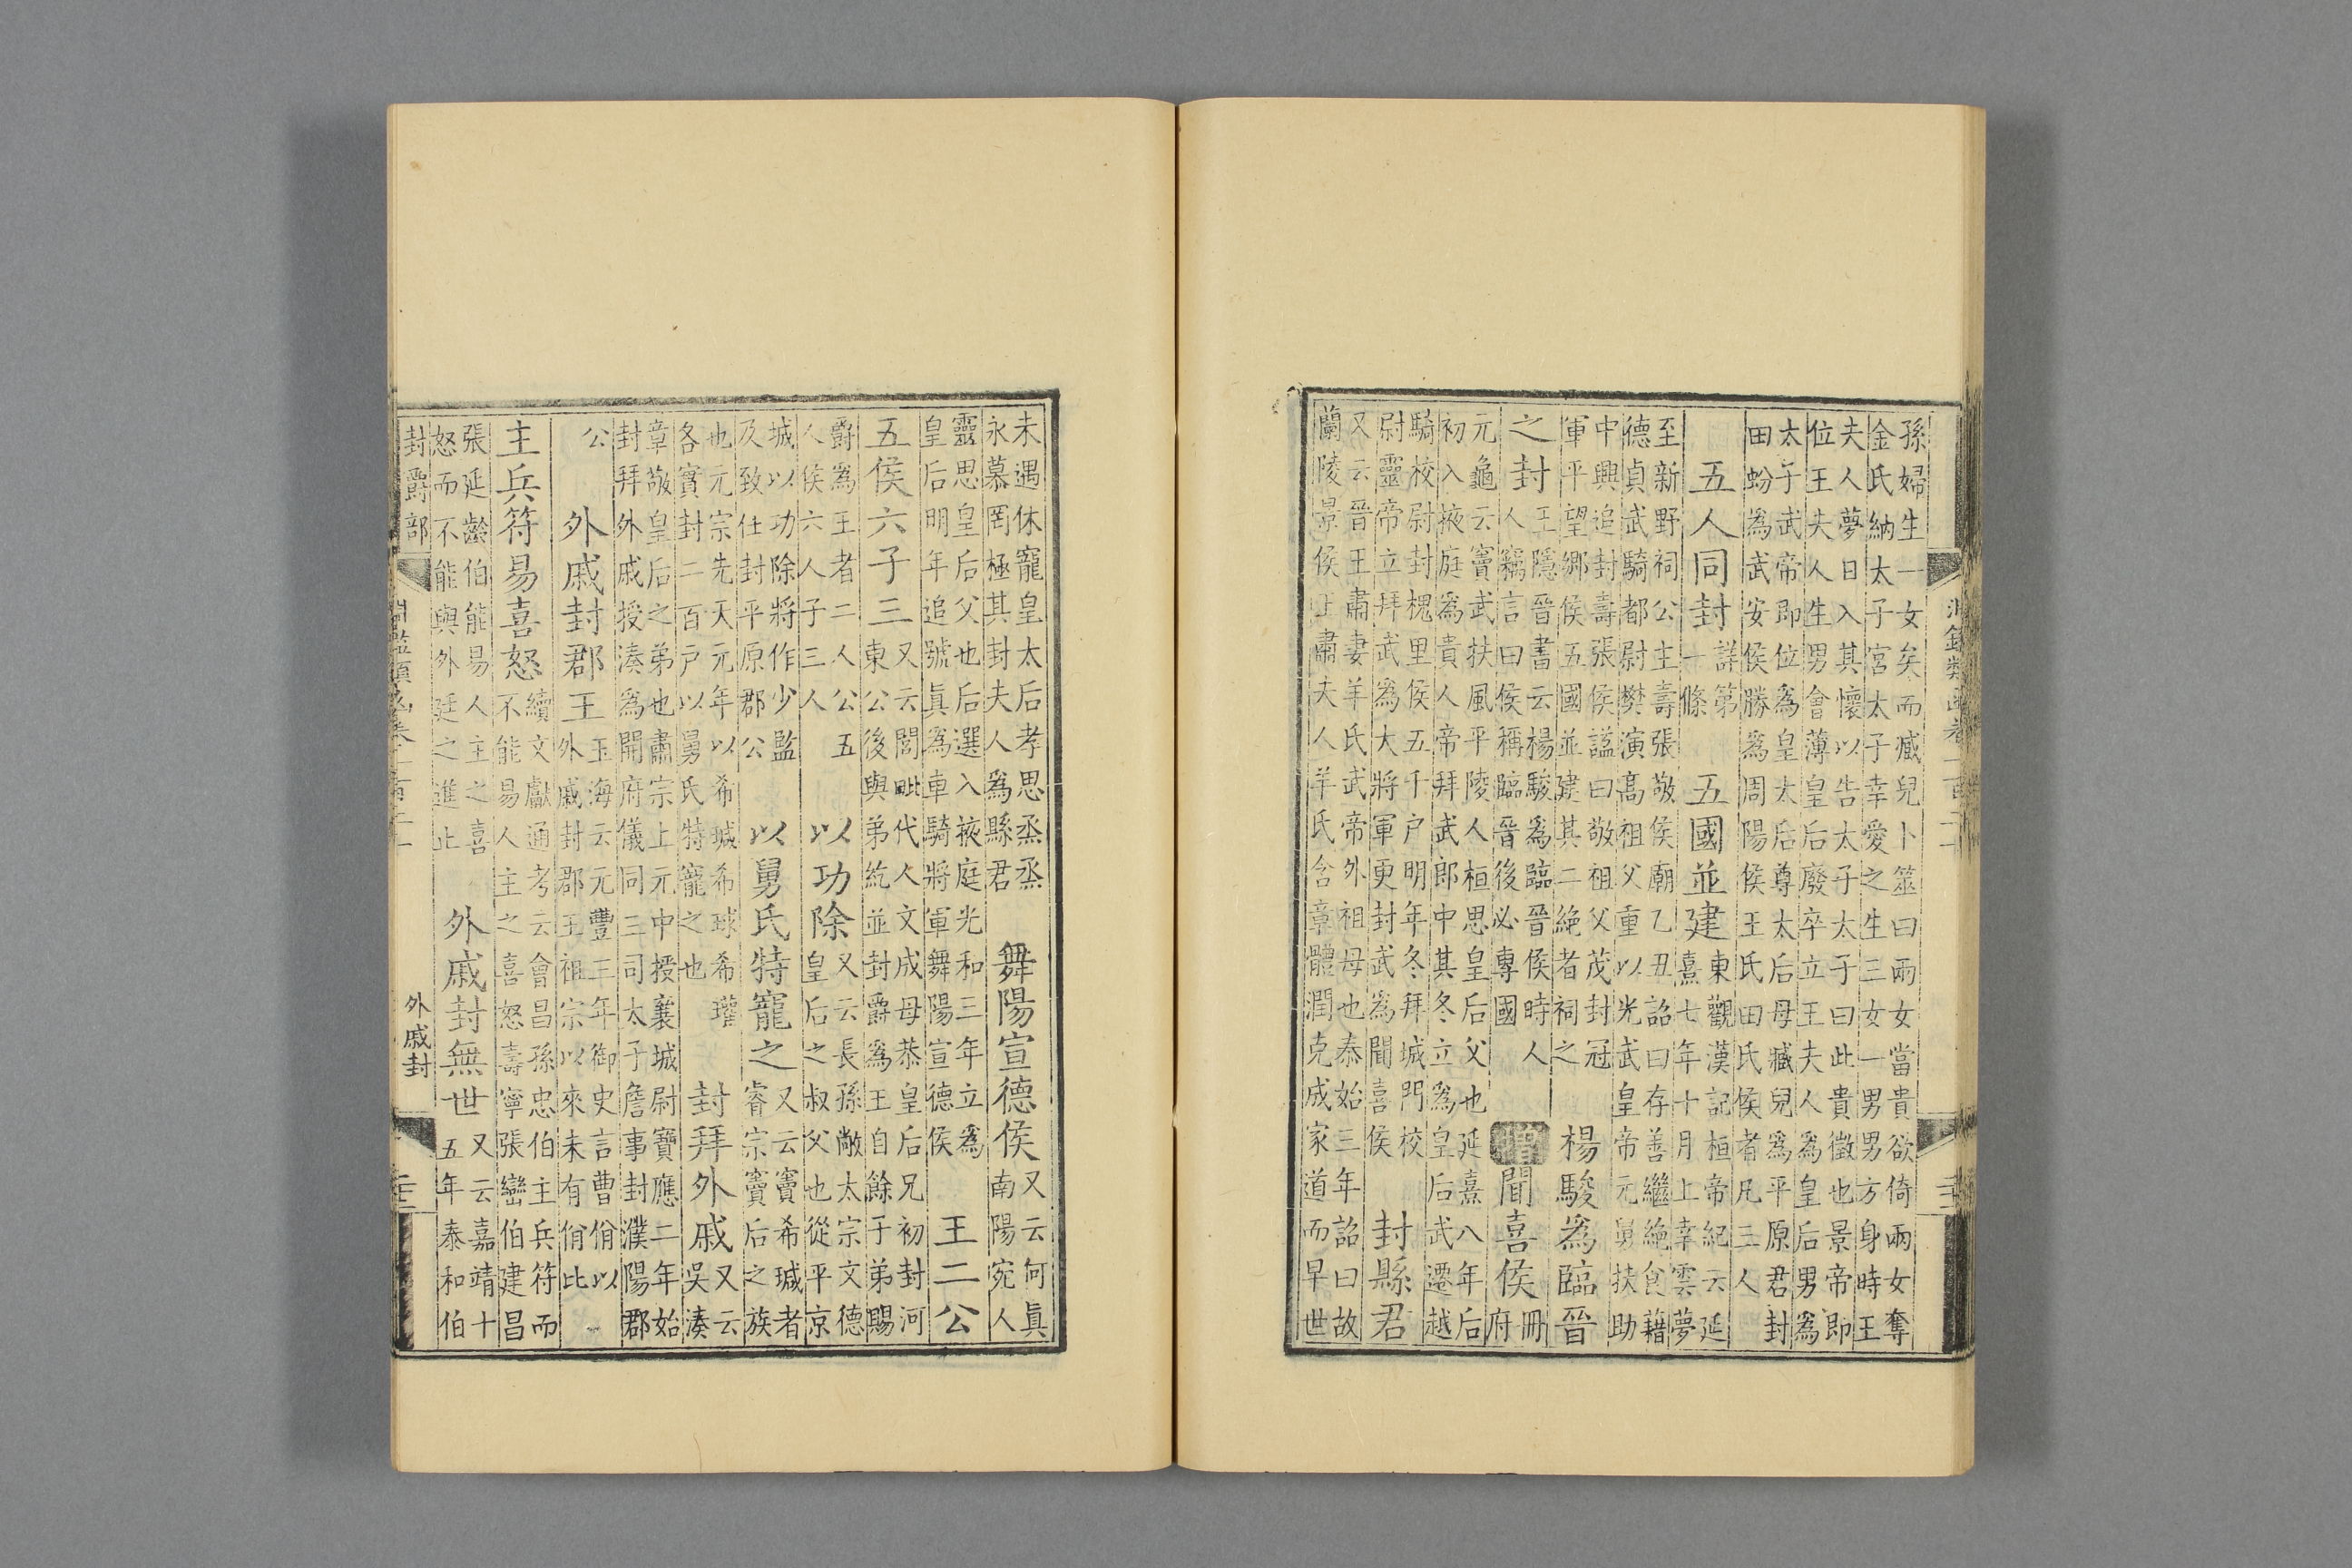 孫婦生一女矣而臧兒卜筮曰兩女當貴欲倚兩女奪
金氏納太子宮太子幸愛之生三女一男男方身時王
夫人夢日入其懷以告太子太子曰此貴徵也景帝即
位王夫人生男會薄皇后廢卒立王夫人為皇后男為
太子武帝即位為皇太后尊太后母臧兒為平原君封
田蚡為武安侯勝為周陽侯王氏田氏侯者凡三人
五人同封
詳第
一條
五國並建
東觀漢記桓帝紀云延
熹七年十月上幸雲夢
至新野祠公主壽張敬侯廟乙丑詔曰存善繼絕食藉
德貞武騎都尉樊演高祖父重以光武皇帝元舅扶助
中興追封壽張侯謚曰敬祖父茂封冠
軍平望鄉侯五國並建其二絕者祠之
楊駿為臨晉
之封
王隱晉書云楊駿為臨晉侯時人
人竊言曰侯稱臨晉後必專國
增
聞喜侯
冊
府
元龜云竇武扶風平陵人桓思皇后父也延熹八年后
初入掖庭為貴人帝拜武郎中其冬立為皇后武遷越
騎校尉封槐里侯五千戶明年冬拜城門校
尉靈帝立拜武為大將軍更封武為聞喜侯
封縣君
又云晉王肅妻羊氏武帝外祖母也泰始三年詔曰故
蘭陵景侯王肅夫人羊氏含章體潤克成家道而早世
未遇休寵皇太后孝思烝烝
永慕罔極其封夫人為縣君
舞陽宣德侯
又云何眞
南陽宛人
靈思皇后父也后選入掖庭光和三年立為
皇后明年追號眞為車騎將軍舞陽宣德侯
王二公
五侯六子三
又云閻毗代人文成母恭皇后兄初封河
東公後與弟紇並封爵為王自餘子弟賜
爵為王者二人公五
人侯六人子三人
以功除
又云長孫敞太宗文德
皇后之叔父也從平京
城以功除將作少監
及致仕封平原郡公
以舅氏特寵之
又云竇希瑊者
睿宗竇后之族
也元宗先天元年以希瑊希球希瓘
各實封二百戶以舅氏特寵之也
封拜外戚
又云
吳湊
章敬皇后之弟也肅宗上元中授襄城尉寶應二年始
封拜外戚授湊為開府儀同三司太子詹事封濮陽郡
公
外戚封郡王
玉海云元豐三年御史言曹佾以
外戚封郡王祖宗以來未有佾比
主兵符易喜怒
續文獻通考云會昌孫忠伯主兵符而
不能易人主之喜怒壽寧張巒伯建昌
張延齡伯能易人主之喜
怒而不能與外廷之進止
外戚封無世
又云嘉靖十
五年泰和伯
封爵部
外戚封